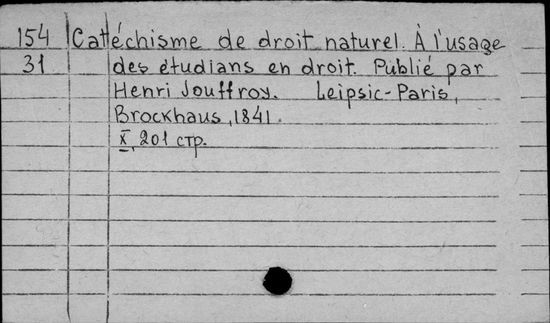 154 Catéchisme de droit naturel. À l'usage
31 des étudians en droit. Publié par
Henri Jouffroy. Leipsic-Paris,
Brockhaus, 1841.
X, 201 стр.